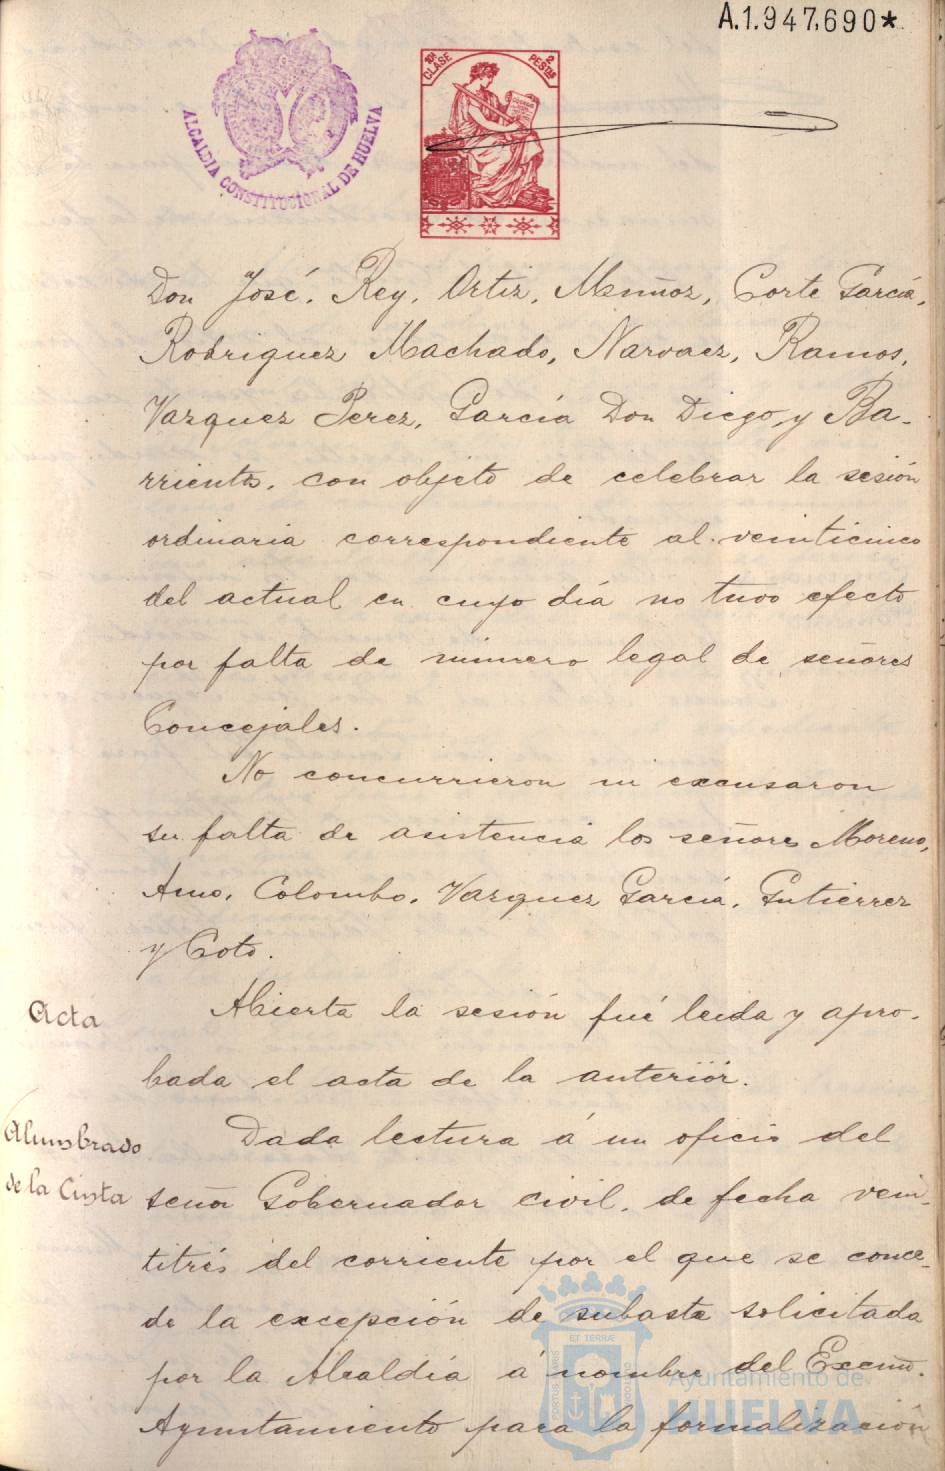 A.1.947.690*
ALCALDIA CONSTITUCIONAL DE HUELVA
10ª CLASE
2 PESTAS
Don José, Rey, Ortiz, Muñoz, Corte García,
Rodriguez Machado, Narvaez, Ramos,
Vazquez Perez, García Don Diego, y Ba-
rrientos, con objeto de celebrar la sesión
ordinaria correspondiente al veinticinco
del actual en cuyo día no tuvo efecto
por falta de número legal de señores
Concejales.
No concurrieron ni excusaron
su falta de asistencia los señores Moreno,
Amo, Colombo, Vazquez García, Gutierrez
y Coto.
Acta
Abierta la sesión fué leida y apro-
bada el acta de la anterior.
Alumbrado
de la Cinta
Dada lectura á un oficio del
señor Gobernador civil, de fecha vein-
titrés del corriente por el que se conce-
de la excepción de subasta solicitada
por la Alcaldía á nombre del Excmo.
Ayuntamiento para la formalización
ET TERRÆ
PORTUS MARIS
CUSTODIA
Ayuntamiento de
HUELVA